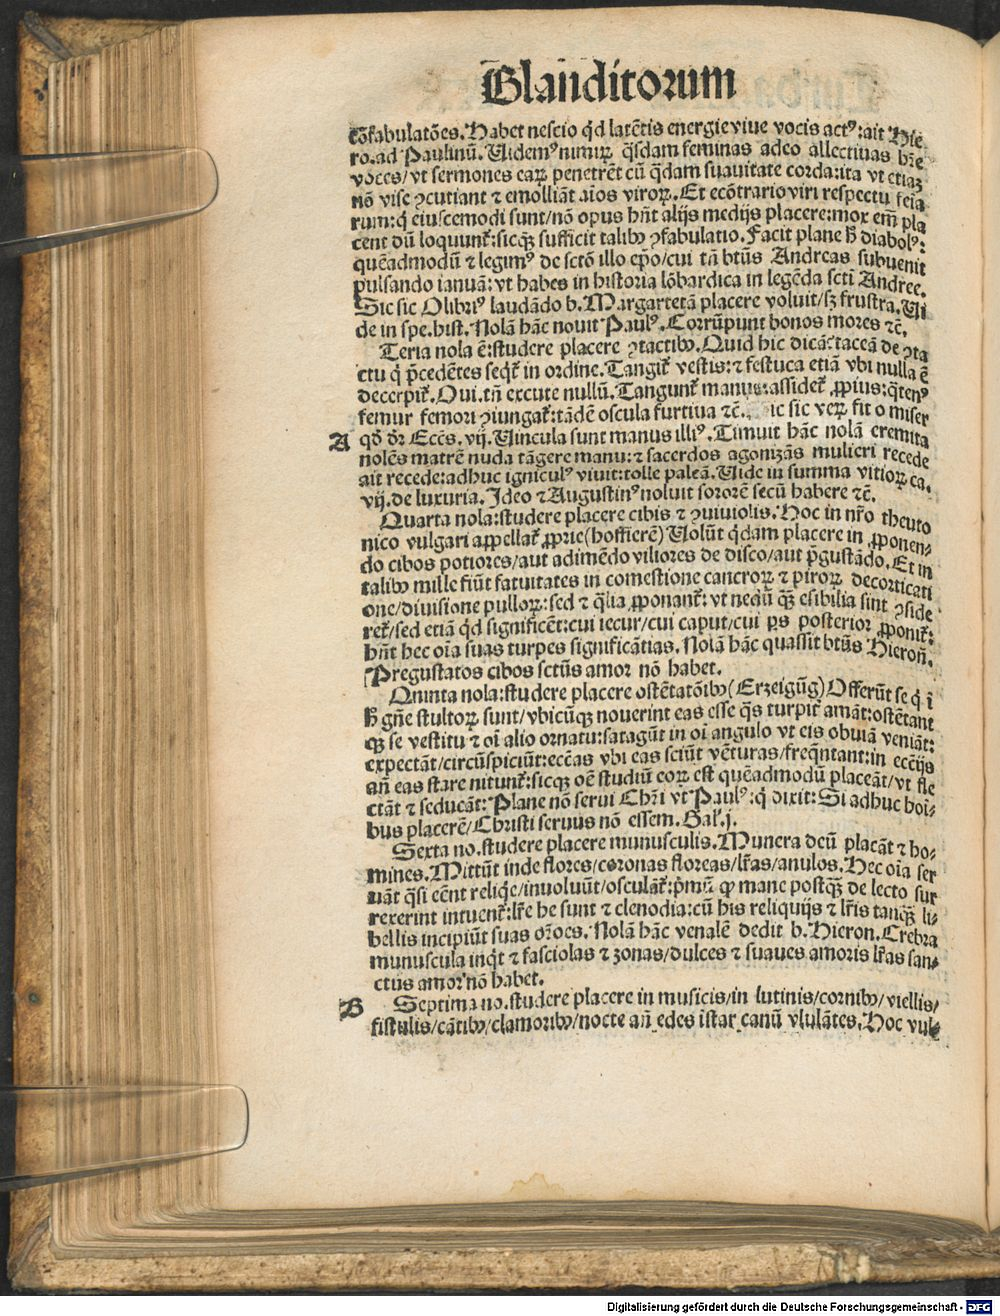 Blanditorum
cōfabulatōes. Habet nescio qd latētis energie viue vocis actꝰ: ait Hie
ro. ad Paulinū. Uidemꝰ nimiꝝ qͣsdam feminas adeo allectiuas hr̄e
voces/ vt sermones eaꝝ penetrēt cū qͣdam suauitate corda: ita vt etiaꝫ
nō vise ꝯcutiant ⁊ emolliāt aīos viroꝝ. Et ecōtrario viri respectu feīa
rum: qͥ eiuscemodi sunt/ nō opus hn̄t alijs medijs placere: mox em̄ pla
cent dū loquunt᷑: sicqꝫ sufficit talibꝰ ꝯfabulatio. Facit plane hͦ diabolꝰ:
quēadmodū ⁊ legimꝰ de sctō illo ep̄o/ cui tā btūs Andreas subuenit
pulsando ianuā: vt habes in historia lōbardica in legēda scti Andree.
Sic sic Olibriꝰ laudādo b. Margaretā placere voluit/ sꝫ frustra. Ui
de in spe. hist. Nolā hāc nouit Paulꝰ. Corrūpunt bonos mores ⁊c̄.
Teria nola ē: studere placere ꝯtactibꝰ. Quid hic dicā? taceā de ꝯta
ctu qͥ p̄cedētes seqt᷑ in ordine. Tangit᷑ vestis: ⁊ festuca etiā vbi nulla ē
decerpit᷑. Oui. tn̄ excute nullū. Tangunt᷑ manus: assidet᷑ ꝓpius: qͣtenꝰ
femur femori ꝯiungat᷑: tādē oscula furtiua ⁊c̄. ic sic veꝝ fit o miser
A qd̄ dr̄ Eccs̄. vij. Uincula sunt manus illiꝰ. Timuit hāc nolā eremita
nolēs matrē nuda tāgere manu: ⁊ sacerdos agonizās mulieri recede
ait recede: adhuc igniculꝰ viuit: tolle paleā. Uide in summa vitioꝝ ca.
vij. de luxuria. Ideo ⁊ Augustinꝰ noluit sororē secū habere ⁊c̄.
Quarta nola: studere placere cibis ⁊ ꝯuiuiolis. Hoc in nr̄o theuto
nico vulgari appellat᷑ ꝓprie (hoffierē) Uolūt qͥdam placere in ꝓponen-
do cibos potiores/ aut adimēdo viliores de disco/ aut p̄gustādo. Et in
talibꝰ mille fiūt fatuitates in comestione cancroꝝ ⁊ piroꝝ decorticati
one/ diuisione pulloꝝ: sed ⁊ qͣlia ꝓponant᷑: vt nedū qͣꝫ esibilia sint ꝯside
ret᷑/ sed etiā qd significēt: cui iecur/ cui caput/ cui ꝑs posterior ꝓponit᷑:
hn̄t hec oīa suas turpes significātias. Nolā hāc quassit btūs Hieroñ.
Pregustatos cibos sctūs amor nō habet.
Quinta nola: studere placere ostētatōibꝰ (Erzeigūg) Offerūt se qͥ ī
hͦ gn̄e stultoꝝ sunt/ vbicūqꝫ nouerint eas esse qͣs turpit᷑ amāt: ostētant
qꝫ se vestitu ⁊ oī alio ornatu: satagūt in oī angulo vt eis obuiā veniāt:
expectāt/ circūspiciūt: ecc̄as vbi eas sciūt vēturas/ freqn̄tant: in ecc̄ijs
an̄ eas stare nitunt᷑: sicqꝫ oē studiū eoꝝ est quēadmodū placeāt/ vt fle
ctāt ⁊ seducāt: Plane nō serui Chr̄i vt Paulꝰ: qͥ dixit: Si adhuc hoī-
bus placerē/ Christi seruus nō essem. Gal̄. j.
Sexta no. studere placere munusculis. Munera deū placāt ⁊ ho-
mines. Mittūt inde flores/ coronas floreas/ lr̄as/ anulos. Hec oīa ser
uāt qͣsi eēnt reliqͥe/ inuoluūt/ osculāt᷑: p̄mū ꝙ mane postqͣꝫ de lecto sur
rexerint intuent᷑: lr̄e he sunt ⁊ clenodia: cū his reliquijs ⁊ lr̄is tanqͣꝫ li-
bellis incipiūt suas or̄oes. Nolā hāc venalē dedit b. Hieron. Crebra
munuscula inqt ⁊ fasciolas ⁊ zonas/ dulces ⁊ suaues amoris lr̄as san-
ctus amor nō habet.
B Septima no. studere placere in musicis/ in lutinis/ cornibꝰ/ viellis/
fistulis/ cātibꝰ/ clamoribꝰ/ nocte an̄ edes istar canū vlulātes. Hoc vul-
Digitalisierung gefördert durch die Deutsche Forschungsgemeinschaft - DFG